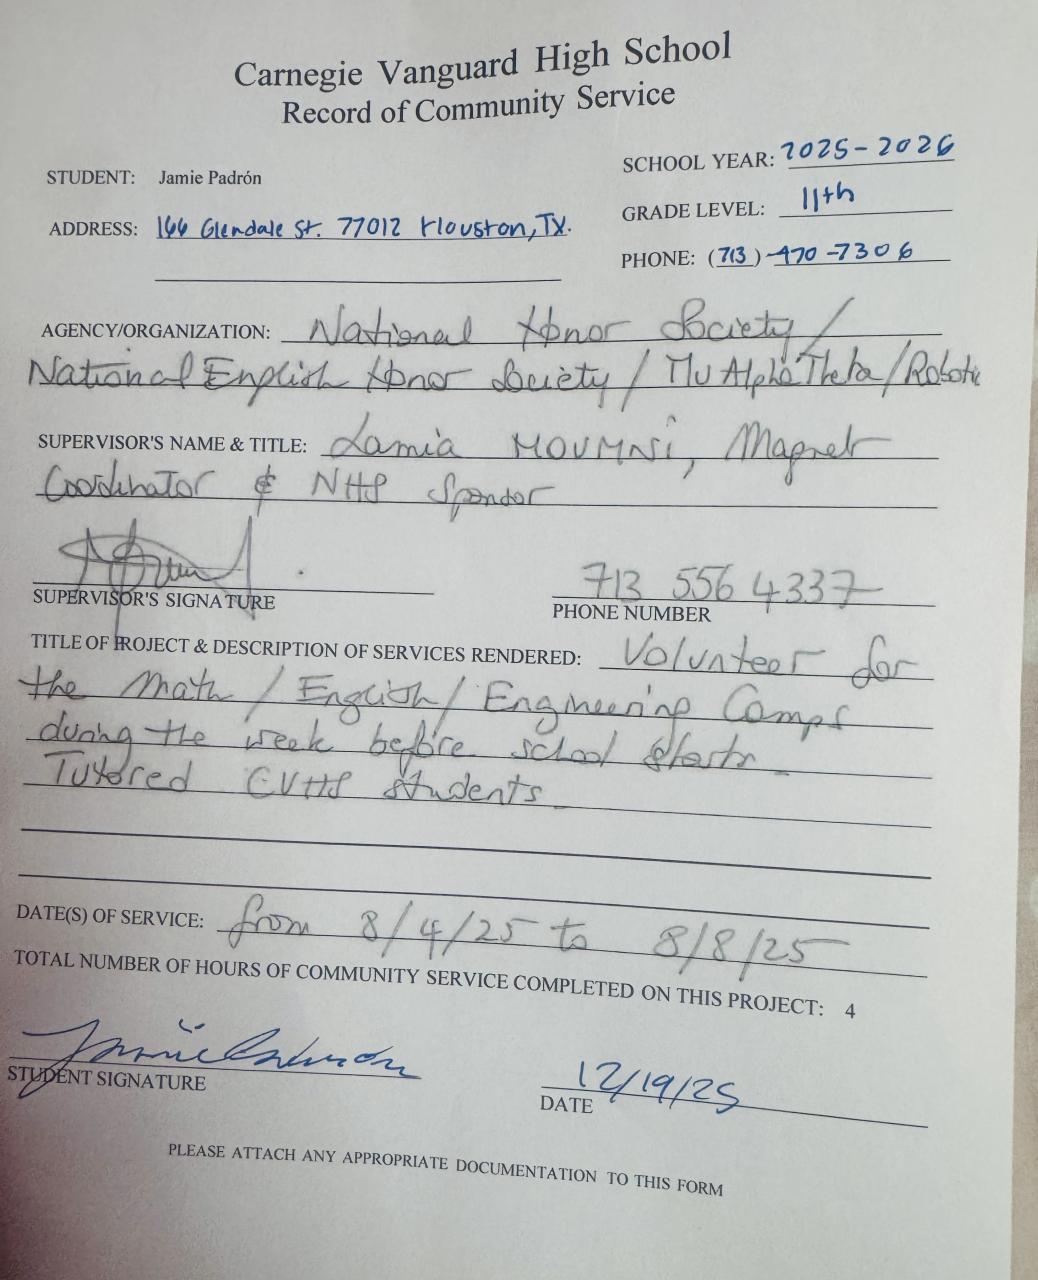 Carnegie Vanguard High School
Record of Community Service
STUDENT: Jamie Padrón
SCHOOL YEAR: 2025-2026
ADDRESS: 166 Glendale St. 77012 Houston, TX.
GRADE LEVEL: 11th
PHONE: (713)-470-7306
AGENCY/ORGANIZATION: National Honor Society/
National English Honor Society/Mu Alpha Theta/Robotic
SUPERVISOR'S NAME & TITLE: Lamia MOUMNi, Magnet
Coordinator & NHS Sponsor
SUPERVISOR'S SIGNATURE
713 556 4337
PHONE NUMBER
TITLE OF PROJECT & DESCRIPTION OF SERVICES RENDERED: Volunteer for
the Math/English/Engineering Camps
during the week before school starts.
Tutored CVHS students.
DATE(S) OF SERVICE: from 8/4/25 to 8/8/25
TOTAL NUMBER OF HOURS OF COMMUNITY SERVICE COMPLETED ON THIS PROJECT: 4
STUDENT SIGNATURE
12/19/25
DATE
PLEASE ATTACH ANY APPROPRIATE DOCUMENTATION TO THIS FORM